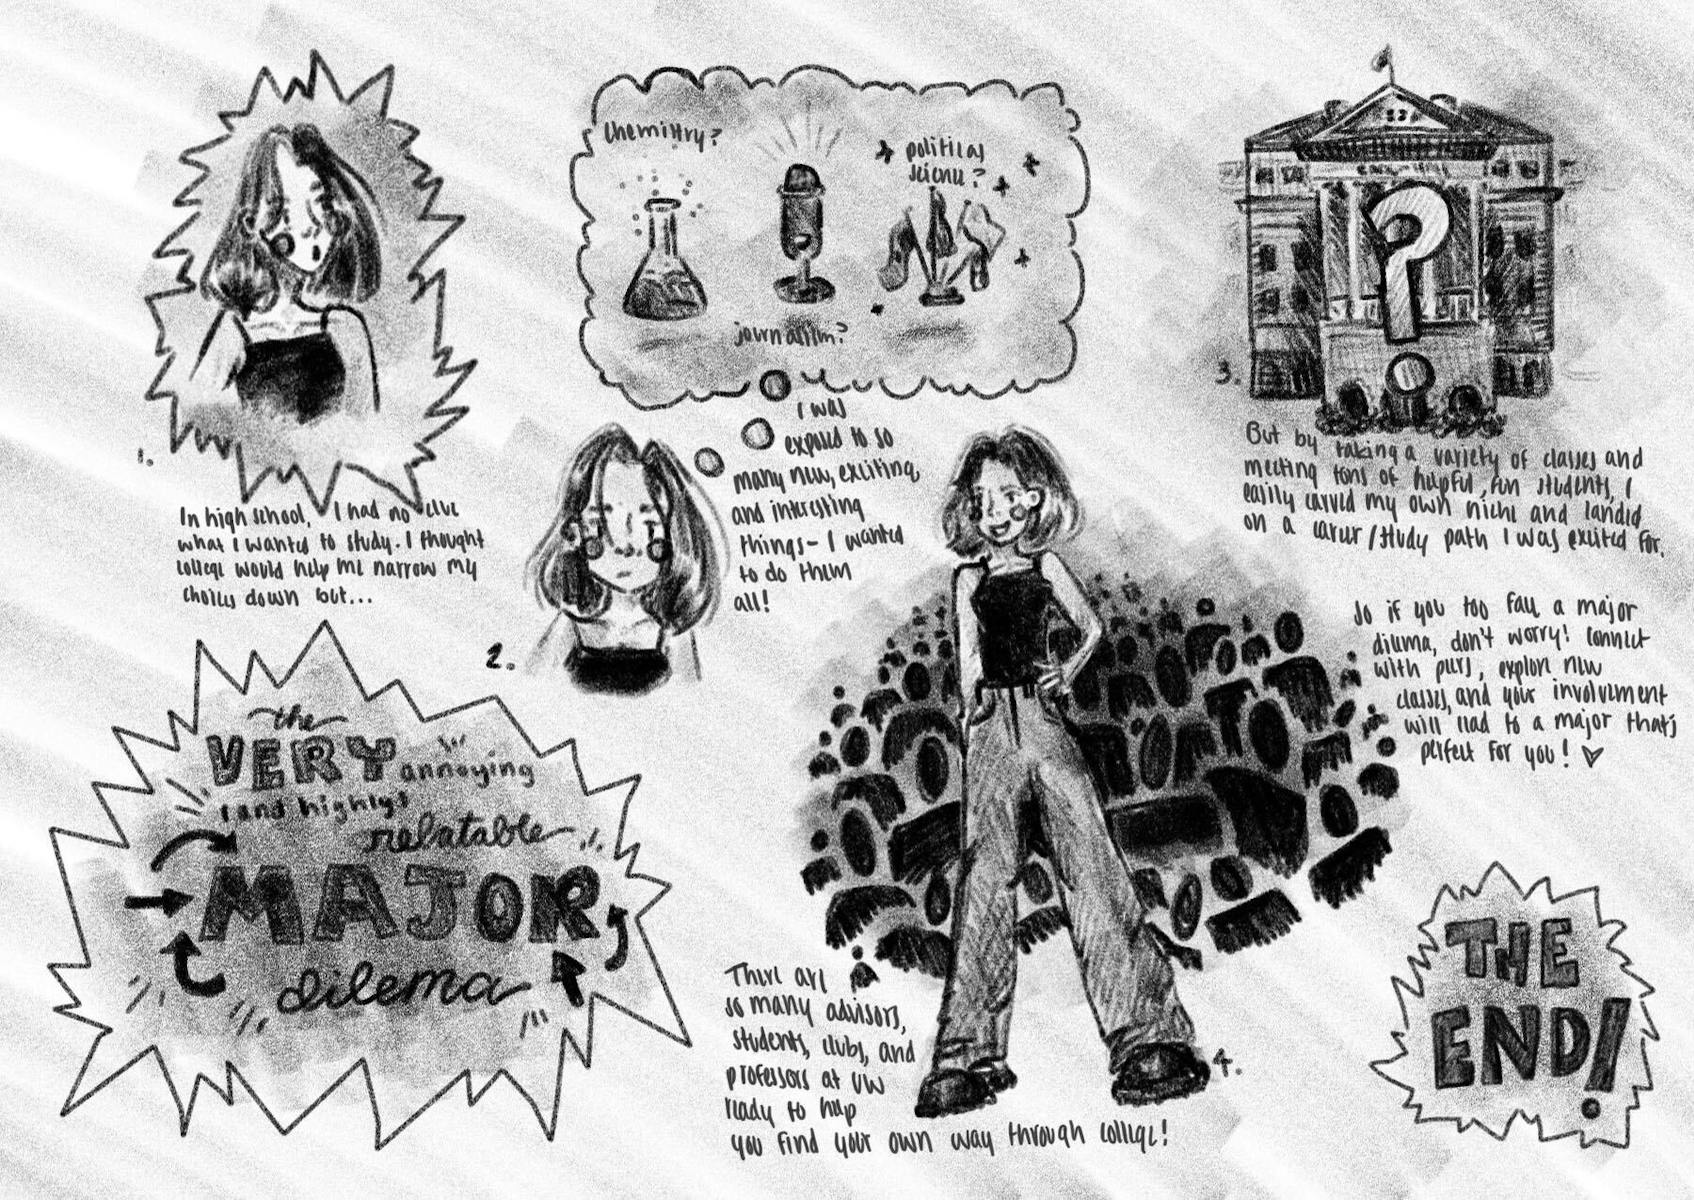 the
VERY annoying
(and highly)
relatable
MAJOR
dilema
1.
In high school, I had no clue
what I wanted to study. I thought
college would help me narrow my
choices down but...
chemistry?
political
science?
journalism?
2.
I was
exposed to so
many new, exciting,
and interesting
things- I wanted
to do them
all!
3.
But by taking a variety of classes and
meeting tons of helpful, fun students, I
easily carved my own niche and landed
on a career/study path I was excited for.
4.
There are
so many advisors,
students, clubs, and
professors at UW
ready to help
you find your own way through college!
So if you too face a major
dilema, don't worry! Connect
with peers, explore new
classes, and your involvement
will lead to a major that's
perfect for you!
THE
END!